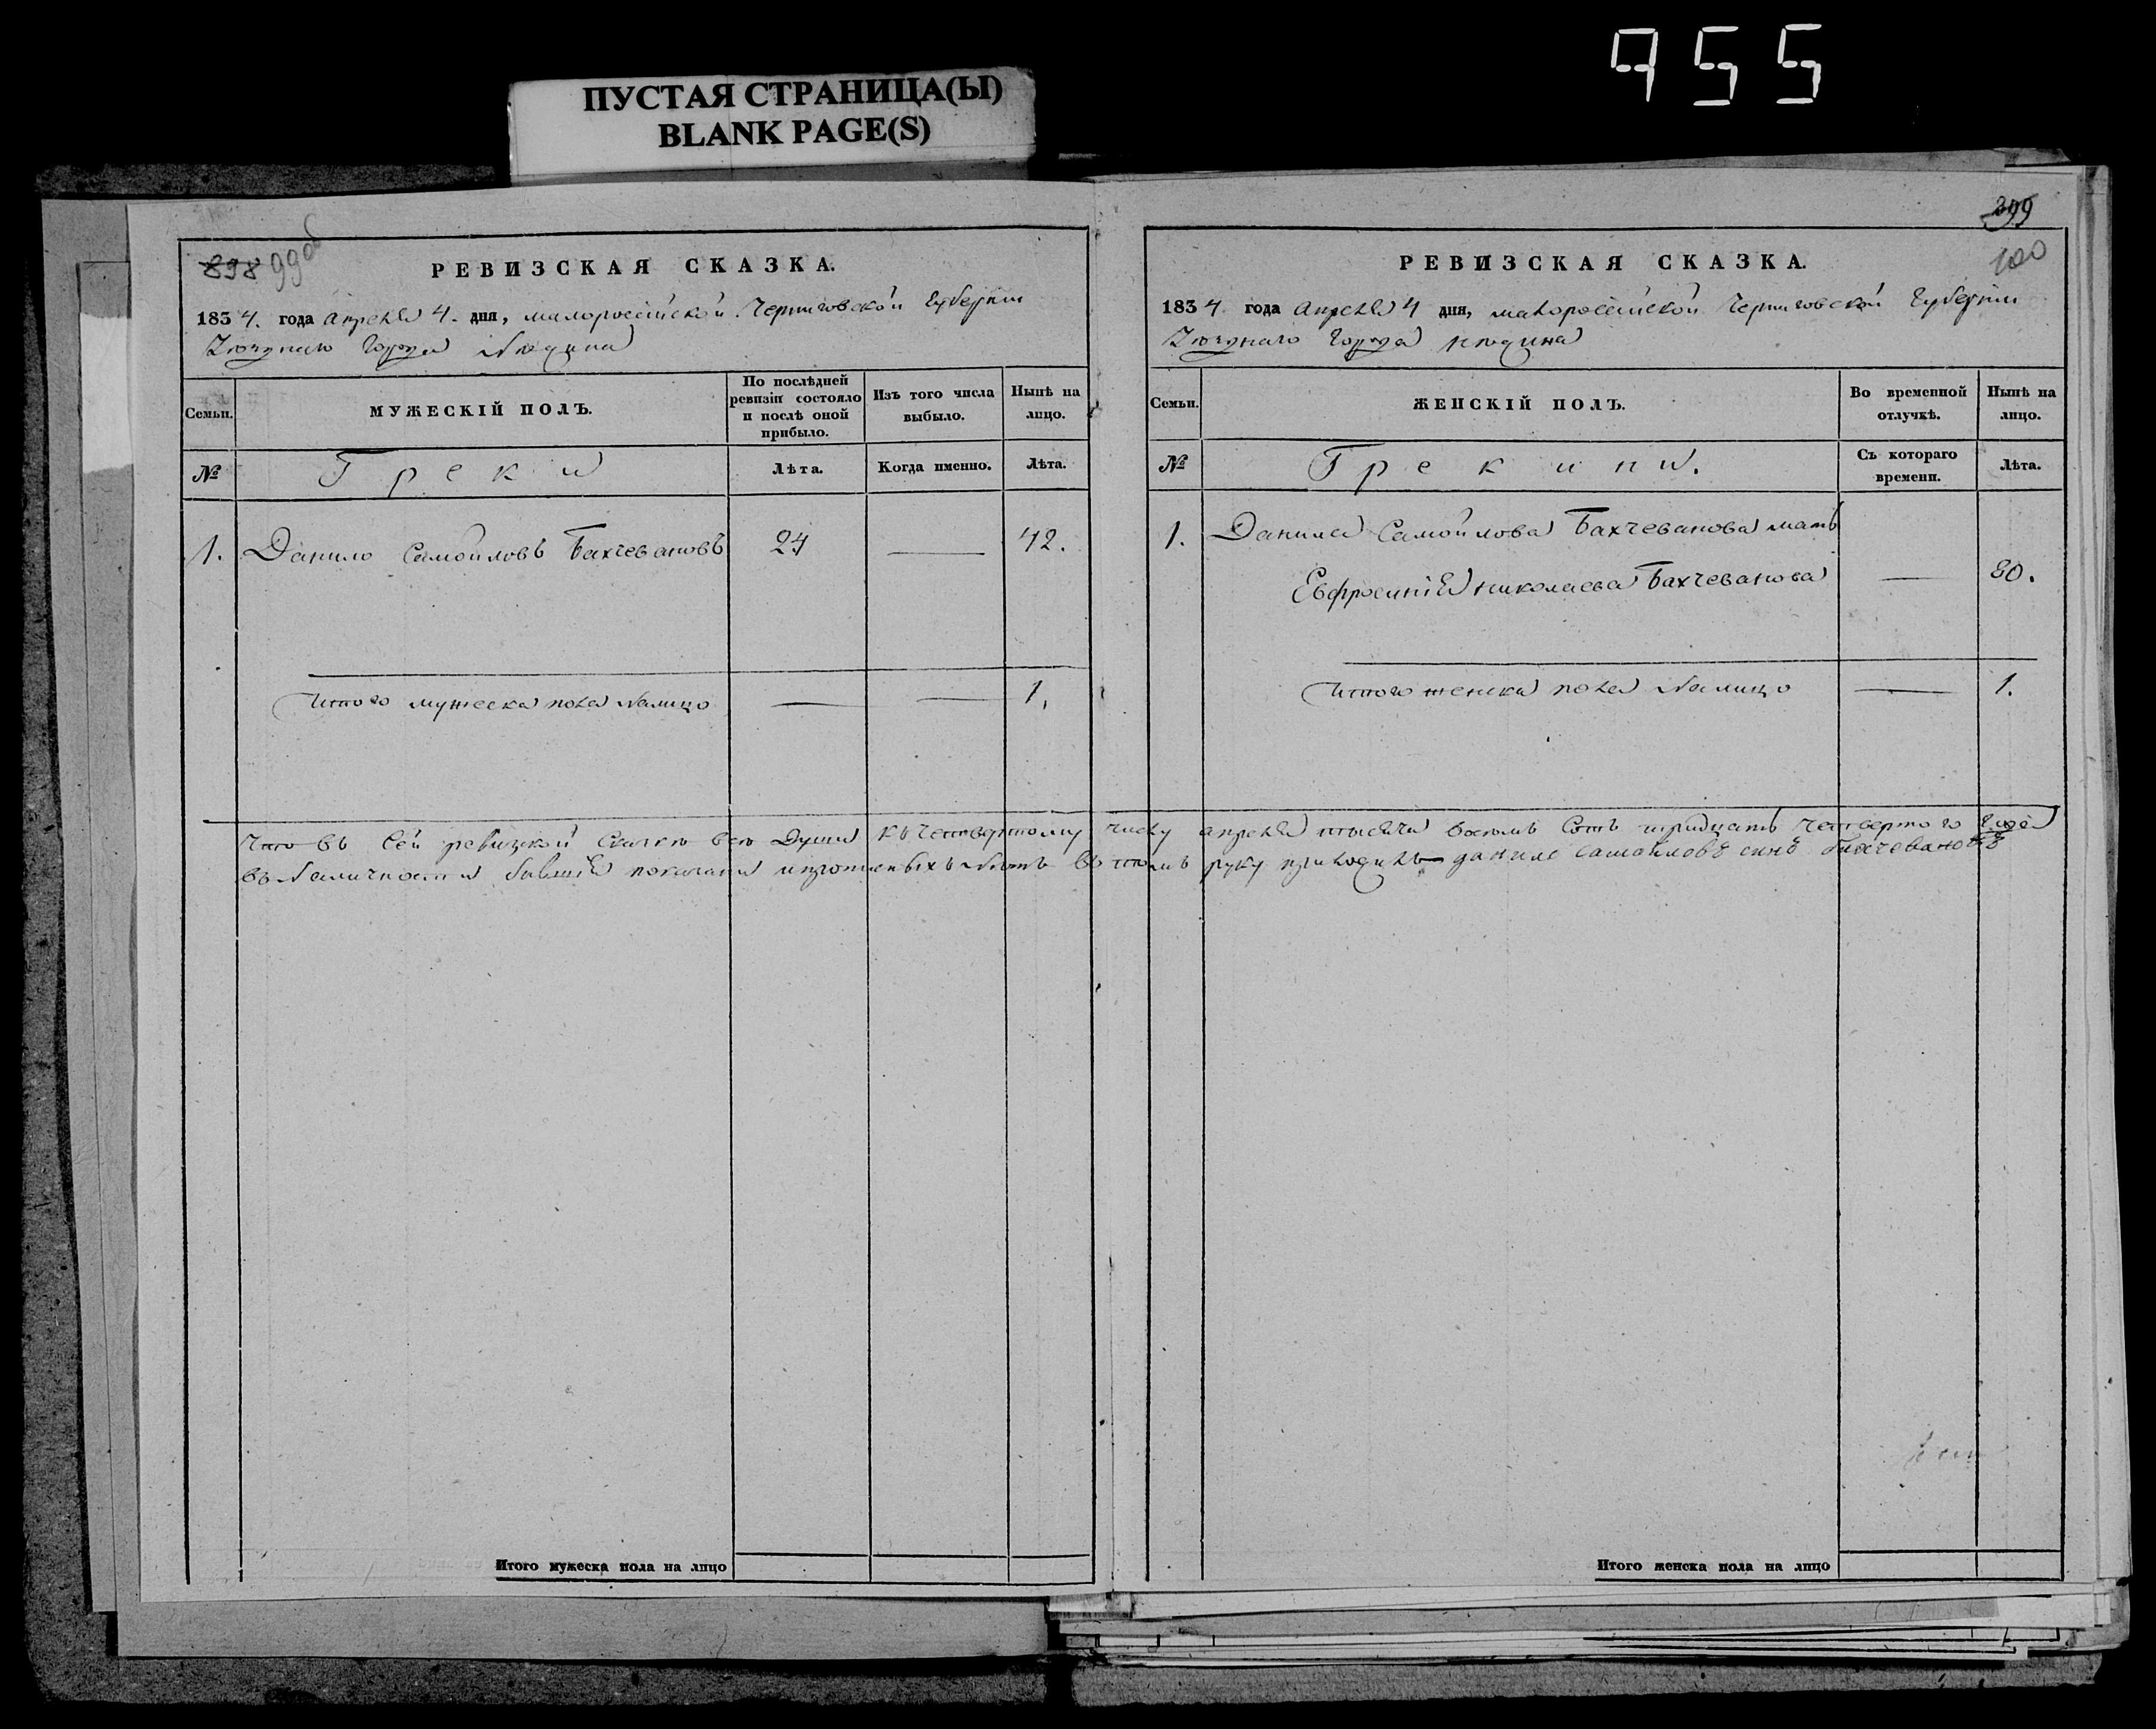 955
ПУСТАЯ СТРАНИЦА(Ы)
BLANK PAGE(S)
898 99об
РЕВИЗСКАЯ СКАЗКА.
1834. года апреля 4. дня, малороссійской Черниговской Губерніи
города
Семьи.
МУЖЕСКІЙ ПОЛЪ.
По послѣдней ревизіи состояло и послѣ оной прибыло.
Изъ того числа выбыло.
Нынѣ на лицо.
№
Греки
Лѣта.
Когда именно.
Лѣта.
1. Данило Самойловъ Бахчевановъ 24 — 42.
Итого мужеска пола налицо — — 1.
899
100
РЕВИЗСКАЯ СКАЗКА.
1834 года апреля 4 дня, малороссійской Черниговской Губерніи
города
Семьи.
ЖЕНСКІЙ ПОЛЪ.
Во временной отлучкѣ.
Нынѣ на лицо.
№
Грекини.
Съ котораго времени.
Лѣта.
1. Данила Самойлова Бахчеванова мать
Евфросинія Николаева Бахчеванова — 80.
Итого женска пола налицо — 1.
Что въ сей ревизской сказке все души къ четвертому числу апреля тысяча восемь сотъ тридцать четвертого года
въ наличности бывшія показаны и нетъ въ томъ руку приложилъ Данило Самойловъ синъ Бахчевановъ
Итого мужеска пола на лицо
Итого женска пола на лицо